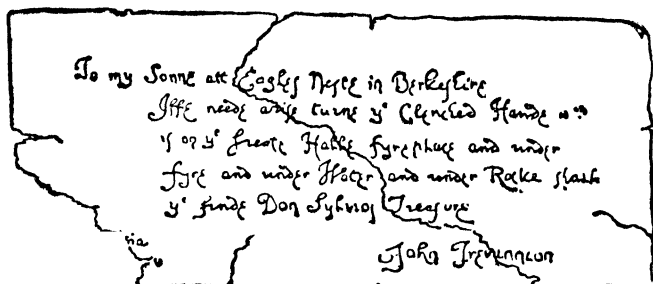 To my Sonne att Eagles Neste in Berkeshire
Iffe neede arise turne yᵉ Clenched Hande wᶜʰ
is on yᵉ Greate Halle fyreplace and under
fyre and under Water and under Rocke shalt
yᵉ finde Don Sylvios Treasure
John Trevannion